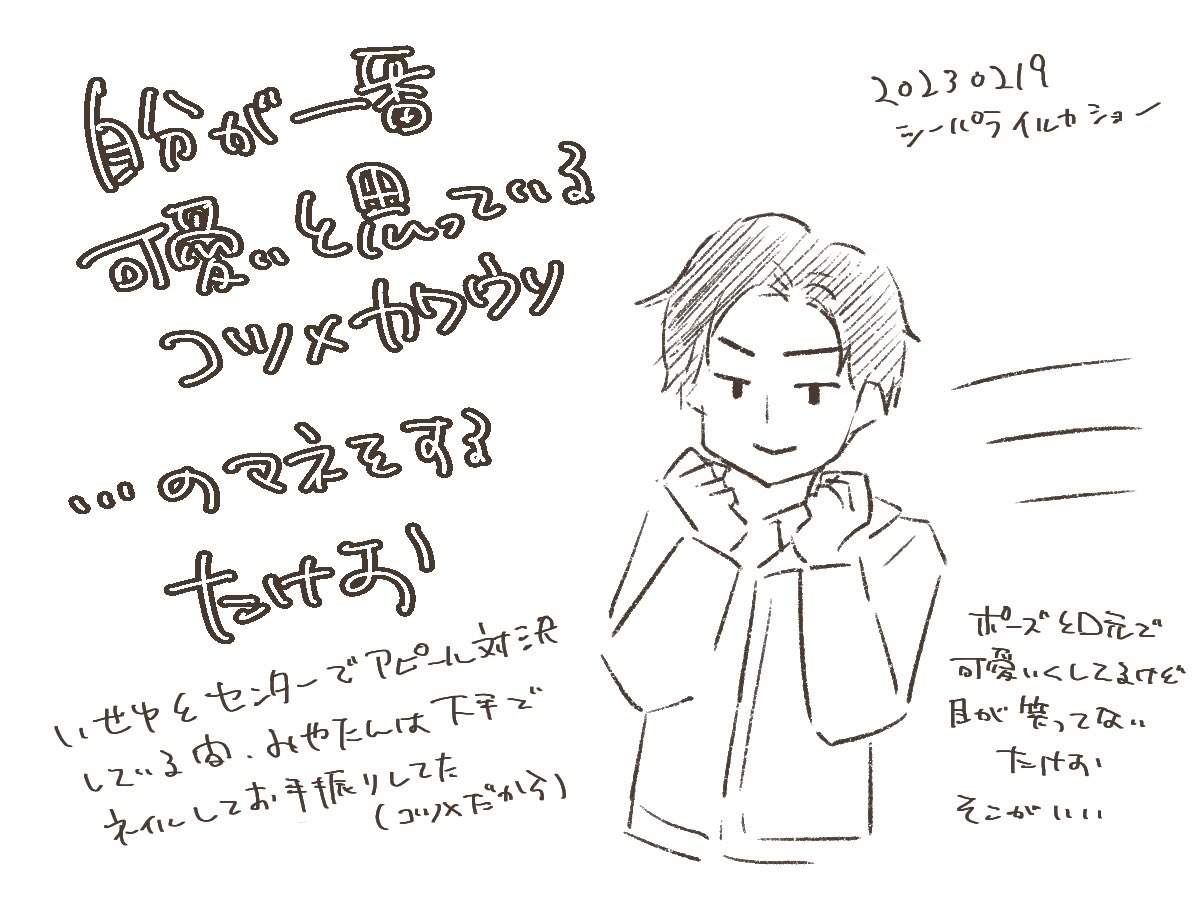 自分が一番
可愛いと思っている
コツメカワウソ
…のマネをする
たけお
いせやとセンターでアピール対決
している間、みやたんは下手で
ネイルしてお手振りしてた
(コツメだから)
20230219
シーパラ イルカショー
ポーズと口元で
可愛いくしてるけど
目が笑ってない
たけお
そこがいい